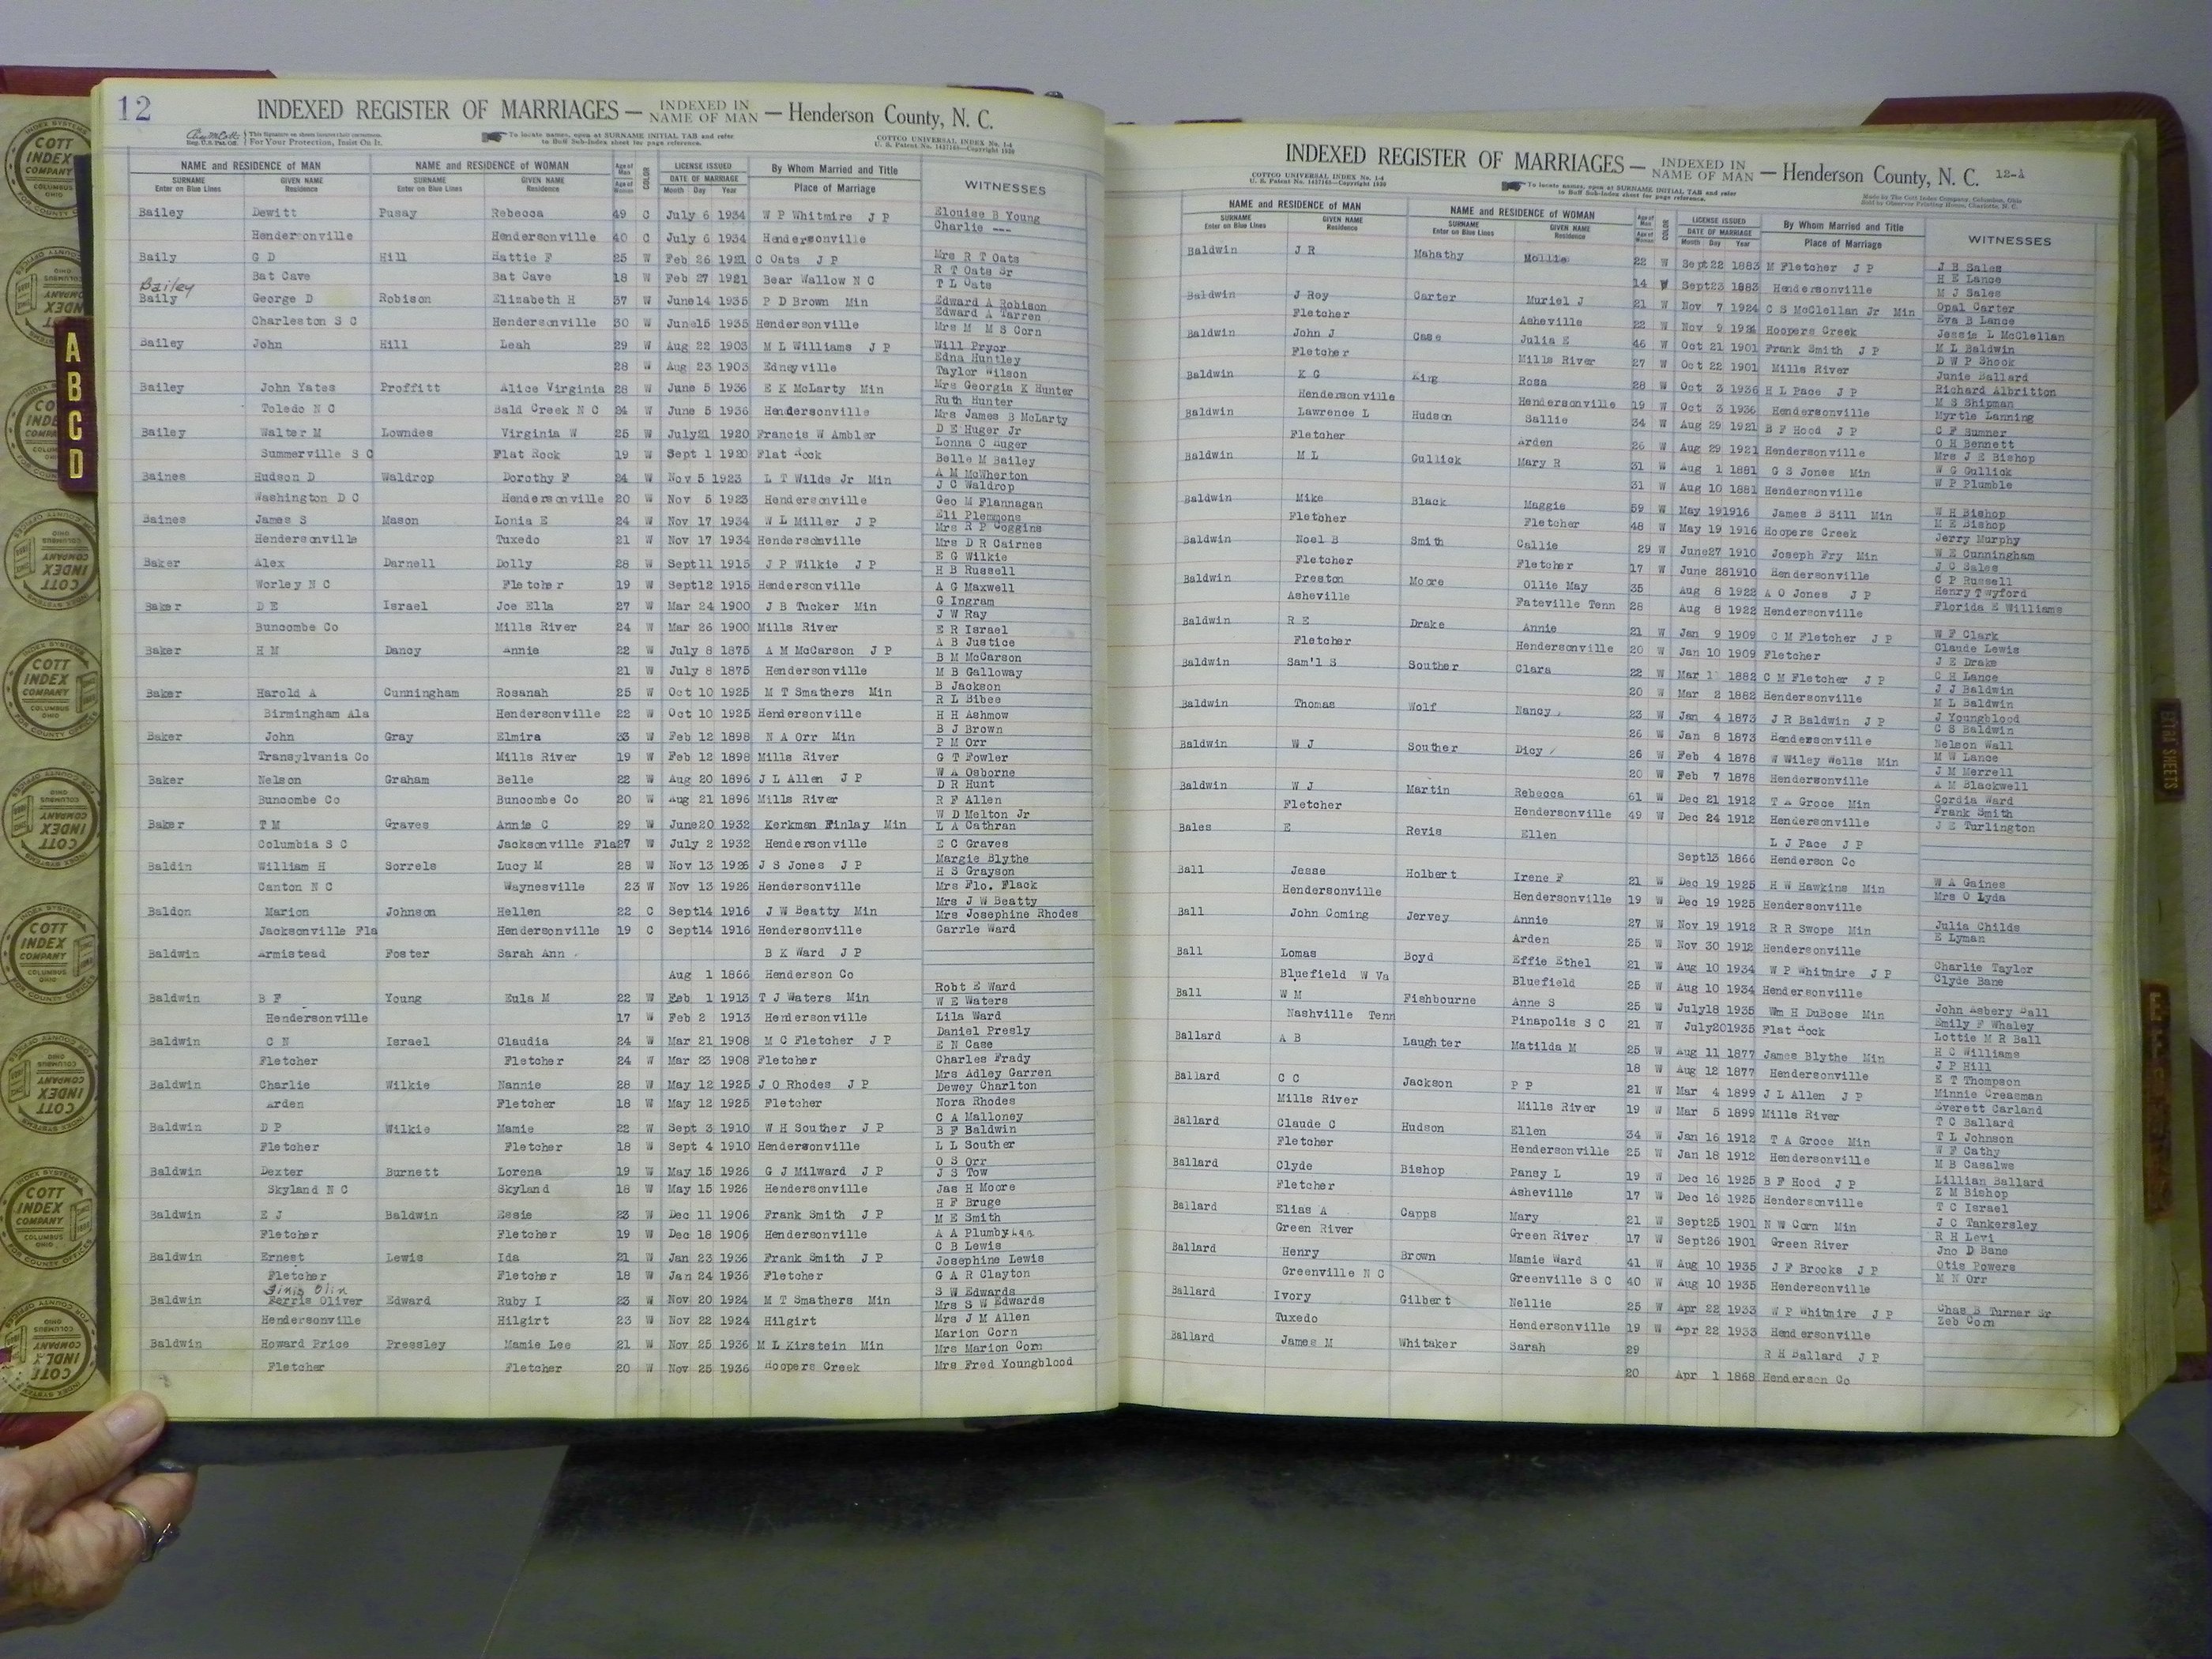 12
INDEXED REGISTER OF MARRIAGES — INDEXED IN NAME OF MAN — Henderson County, N. C.
This Signature on sheets insures their correctness.
For Your Protection, Insist On It.
To locate names, open at SURNAME INITIAL TAB and refer
to Buff Sub-Index sheet for page reference.
COTTCO UNIVERSAL INDEX No. 1-4
NAME and RESIDENCE of MAN NAME and RESIDENCE of WOMAN Age of Man COLOR LICENSE ISSUED By Whom Married and Title WITNESSES
SURNAME Enter on Blue Lines GIVEN NAME Residence SURNAME Enter on Blue Lines GIVEN NAME Residence Age of Woman DATE OF MARRIAGE Month Day Year Place of Marriage
Bailey Dewitt Pusay Rebecca 49 C July 6 1934 W P Whitmire J P Elouise B Young
Charlie ---
Hendersonville Hendersonville 40 C July 6 1934 Hendersonville
Baily G D Hill Hattie F 25 W Feb 26 1921 C Oats J P Mrs R T Oats
R T Oats Sr
Bat Cave Bat Cave 18 W Feb 27 1921 Bear Wallow N C T L Oats
Bailey
Baily George D Robison Elizabeth H 37 W June14 1935 P D Brown Min Edward A Robison
Edward A Tarren
Charleston S C Hendersonville 30 W June15 1935 Hendersonville Mrs M M S Corn
Bailey John Hill Leah 29 W Aug 22 1903 M L Williams J P Will Pryor
Edna Huntley
28 W Aug 23 1903 Edneyville Taylor Wilson
Bailey John Yates Proffitt Alice Virginia 28 W June 5 1936 E K McLarty Min Mrs Georgia K Hunter
Ruth Hunter
Toledo N C Bald Creek N C 24 W June 5 1936 Hendersonville Mrs James B McLarty
Bailey Walter M Lowndes Virginia W 25 W July21 1920 Francis W Ambler D E Huger Jr
Lonna C Huger
Summerville S C Flat Rock 19 W Sept 1 1920 Flat Rock Belle M Bailey
Baines Hudson D Waldrop Dorothy F 24 W Nov 5 1923 L T Wilds Jr Min A M McWherton
J C Waldrop
Washington D C Hendersonville 20 W Nov 5 1923 Hendersonville Geo M Flannagan
Baines James S Mason Lonia E 24 W Nov 17 1934 W L Miller J P Eli Plemmons
Mrs R P Coggins
Hendersonville Tuxedo 21 W Nov 17 1934 Hendersonville Mrs D R Cairnes
Baker Alex Darnell Dolly 28 W Sept11 1915 J P Wilkie J P E G Wilkie
H B Russell
Worley N C Fletcher 19 W Sept12 1915 Hendersonville A G Maxwell
Baker D E Israel Joe Ella 27 W Mar 24 1900 J B Tucker Min G Ingram
J W Ray
Buncombe Co Mills River 24 W Mar 26 1900 Mills River E R Israel
Baker H M Dancy Annie 22 W July 8 1875 A M McCarson J P A B Justice
B M McCarson
21 W July 8 1875 Hendersonville M B Galloway
Baker Harold A Cunningham Rosanah 25 W Oct 10 1925 M T Smathers Min B Jackson
R L Bibee
Birmingham Ala Hendersonville 22 W Oct 10 1925 Hendersonville H H Ashmow
Baker John Gray Elmira 33 W Feb 12 1898 N A Orr Min B J Brown
P M Orr
Transylvania Co Mills River 19 W Feb 12 1898 Mills River G T Fowler
Baker Nelson Graham Belle 22 W Aug 20 1896 J L Allen J P W A Osborne
D R Hunt
Buncombe Co Buncombe Co 20 W Aug 21 1896 Mills River R F Allen
Baker T M Graves Annie C 29 W June20 1932 Kerkman Finlay Min W D Melton Jr
L A Cathran
Columbia S C Jacksonville Fla 27 W July 2 1932 Hendersonville E C Graves
Baldin William H Sorrels Lucy M 28 W Nov 13 1926 J S Jones J P Margie Blythe
H S Grayson
Canton N C Waynesville 23 W Nov 13 1926 Hendersonville Mrs Flo. Flack
Baldon Marion Johnson Hellen 22 C Sept14 1916 J W Beatty Min Mrs J W Beatty
Mrs Josephine Rhodes
Jacksonville Fla Hendersonville 19 C Sept14 1916 Hendersonville Garrle Ward
Baldwin Armistead Foster Sarah Ann B K Ward J P
Aug 1 1866 Henderson Co
Baldwin B F Young Eula M 22 W Feb 1 1913 T J Waters Min Robt E Ward
W E Waters
Hendersonville 17 W Feb 2 1913 Hendersonville Lila Ward
Baldwin C N Israel Claudia 24 W Mar 21 1908 M C Fletcher J P Daniel Presly
E N Case
Fletcher Fletcher 24 W Mar 23 1908 Fletcher Charles Frady
Baldwin Charlie Wilkie Nannie 28 W May 12 1925 J O Rhodes J P Mrs Adley Garren
Dewey Charlton
Arden Fletcher 18 W May 12 1925 Fletcher Nora Rhodes
Baldwin D P Wilkie Mamie 22 W Sept 3 1910 W H Souther J P C A Malloney
B F Baldwin
Fletcher Fletcher 18 W Sept 4 1910 Hendersonville L L Souther
Baldwin Dexter Burnett Lorena 19 W May 15 1926 G J Milward J P O S Orr
J S Tow
Skyland N C Skyland 18 W May 15 1926 Hendersonville Jas H Moore
Baldwin E J Baldwin Essie 23 W Dec 11 1906 Frank Smith J P H F Bruge
M E Smith
Fletcher Fletcher 19 W Dec 18 1906 Hendersonville A A Plumbylan
Baldwin Ernest Lewis Ida 21 W Jan 23 1936 Frank Smith J P C B Lewis
Josephine Lewis
Fletcher Fletcher 18 W Jan 24 1936 Fletcher G A R Clayton
Baldwin Ferris Oliver Edward Ruby I 23 W Nov 20 1924 M T Smathers Min S W Edwards
Mrs S W Edwards
Hendersonville Hilgirt 23 W Nov 22 1924 Hilgirt Mrs J M Allen
Baldwin Howard Price Pressley Mamie Lee 21 W Nov 25 1936 M L Kirstein Min Marion Corn
Mrs Marion Corn
Fletcher Fletcher 20 W Nov 25 1936 Hoopers Creek Mrs Fred Youngblood
INDEXED REGISTER OF MARRIAGES — INDEXED IN NAME OF MAN — Henderson County, N. C. 12-A
COTTCO UNIVERSAL INDEX No. 1-4
To locate names, open at SURNAME INITIAL TAB and refer
to Buff Sub-Index sheet for page reference.
Made by The Cott Index Company, Columbus, Ohio
Sold by Observer Printing House, Charlotte, N. C.
NAME and RESIDENCE of MAN NAME and RESIDENCE of WOMAN Age of Man COLOR LICENSE ISSUED By Whom Married and Title WITNESSES
SURNAME Enter on Blue Lines GIVEN NAME Residence SURNAME Enter on Blue Lines GIVEN NAME Residence Age of Woman DATE OF MARRIAGE Month Day Year Place of Marriage
Baldwin J R Mahathy Mollie 22 W Sept22 1883 M Fletcher J P J B Sales
H E Lance
14 W Sept23 1883 Hendersonville M J Sales
Baldwin J Roy Carter Muriel J 21 W Nov 7 1924 C S McClellan Jr Min Opal Carter
Eva B Lance
Fletcher Asheville 22 W Nov 9 1924 Hoopers Creek Jessie L McClellan
Baldwin John J Case Julia E 46 W Oct 21 1901 Frank Smith J P M L Baldwin
D W P Shook
Fletcher Mills River 27 W Oct 22 1901 Mills River Junie Ballard
Baldwin K G King Rosa 28 W Oct 3 1936 H L Pace J P Richard Albritton
M S Shipman
Hendersonville Hendersonville 19 W Oct 3 1936 Hendersonville Myrtle Lanning
Baldwin Lawrence L Hudson Sallie 34 W Aug 29 1921 B F Hood J P C F Sumner
O H Bennett
Fletcher Arden 26 W Aug 29 1921 Hendersonville Mrs J E Bishop
Baldwin M L Gullick Mary R 31 W Aug 1 1881 G S Jones Min W G Gullick
W P Plumble
31 W Aug 10 1881 Hendersonville
Baldwin Mike Black Maggie 59 W May 191916 James B Sill Min W H Bishop
M E Bishop
Fletcher Fletcher 48 W May 19 1916 Hoopers Creek Jerry Murphy
Baldwin Noel B Smith Callie 29 W June27 1910 Joseph Fry Min W E Cunningham
J C Sales
Fletcher Fletcher 17 W June 281910 Hendersonville C P Russell
Baldwin Preston Moore Ollie May 35 Aug 8 1922 A O Jones J P Henry Twyford
Florida E Williams
Asheville Fateville Tenn 28 Aug 8 1922 Hendersonville
Baldwin R E Drake Annie 21 W Jan 9 1909 C M Fletcher J P W F Clark
Claude Lewis
Fletcher Hendersonville 20 W Jan 10 1909 Fletcher J E Drake
Baldwin Sam'l S Souther Clara 22 W Mar 1 1882 C M Fletcher J P C H Lance
J J Baldwin
20 W Mar 2 1882 Hendersonville M L Baldwin
Baldwin Thomas Wolf Nancy 23 W Jan 4 1873 J R Baldwin J P J Youngblood
C S Baldwin
26 W Jan 8 1873 Hendersonville Nelson Wall
Baldwin W J Souther Dicy 26 W Feb 4 1878 W Wiley Wells Min M W Lance
J M Merrell
20 W Feb 7 1878 Hendersonville A M Blackwell
Baldwin W J Martin Rebecca 61 W Dec 21 1912 T A Groce Min Cordia Ward
Frank Smith
Fletcher Hendersonville 49 W Dec 24 1912 Hendersonville J E Turlington
Bales E Revis Ellen L J Pace J P
Sept13 1866 Henderson Co
Ball Jesse Holbert Irene F 21 W Dec 19 1925 H W Hawkins Min W A Gaines
Mrs O Lyda
Hendersonville Hendersonville 19 W Dec 19 1925 Hendersonville
Ball John Coming Jervey Annie 27 W Nov 19 1912 R R Swope Min Julia Childs
E Lyman
Arden 25 W Nov 30 1912 Hendersonville
Ball Lomas Boyd Effie Ethel 21 W Aug 10 1934 W P Whitmire J P Charlie Taylor
Clyde Bane
Bluefield W Va Bluefield 25 W Aug 10 1934 Hendersonville
Ball W M Fishbourne Anne S 25 W July18 1935 Wm H DuBose Min John Asbery Ball
Emily F Whaley
Nashville Tenn Pinapolis S C 21 W July201935 Flat Rock Lottie M R Ball
Ballard A B Laughter Matilda M 25 W Aug 11 1877 James Blythe Min H C Williams
J P Hill
18 W Aug 12 1877 Hendersonville E T Thompson
Ballard C C Jackson P P 21 W Mar 4 1899 J L Allen J P Minnie Creasman
Everett Garland
Mills River Mills River 19 W Mar 5 1899 Mills River T C Ballard
Ballard Claude C Hudson Ellen 34 W Jan 16 1912 T A Groce Min T L Johnson
W F Cathy
Fletcher Hendersonville 25 W Jan 18 1912 Hendersonville M B Casalwe
Ballard Clyde Bishop Pansy L 19 W Dec 16 1925 B F Hood J P Lillian Ballard
Z M Bishop
Fletcher Asheville 17 W Dec 16 1925 Hendersonville T C Israel
Ballard Elias A Capps Mary 21 W Sept25 1901 N W Corn Min J C Tankersley
R H Levi
Green River Green River 17 W Sept26 1901 Green River Jno D Bane
Ballard Henry Brown Mamie Ward 41 W Aug 10 1935 J F Brooks J P Otis Powers
M N Orr
Greenville N C Greenville S C 40 W Aug 10 1935 Hendersonville
Ballard Ivory Gilbert Nellie 25 W Apr 22 1933 W P Whitmire J P Chas B Turner Sr
Zeb Corn
Tuxedo Hendersonville 19 W Apr 22 1933 Hendersonville
Ballard James M Whitaker Sarah 29 R H Ballard J P
20 Apr 1 1868 Henderson Co
A
B
C
D
COTT
INDEX
COMPANY
COLUMBUS
OHIO
EXTRA SHEETS